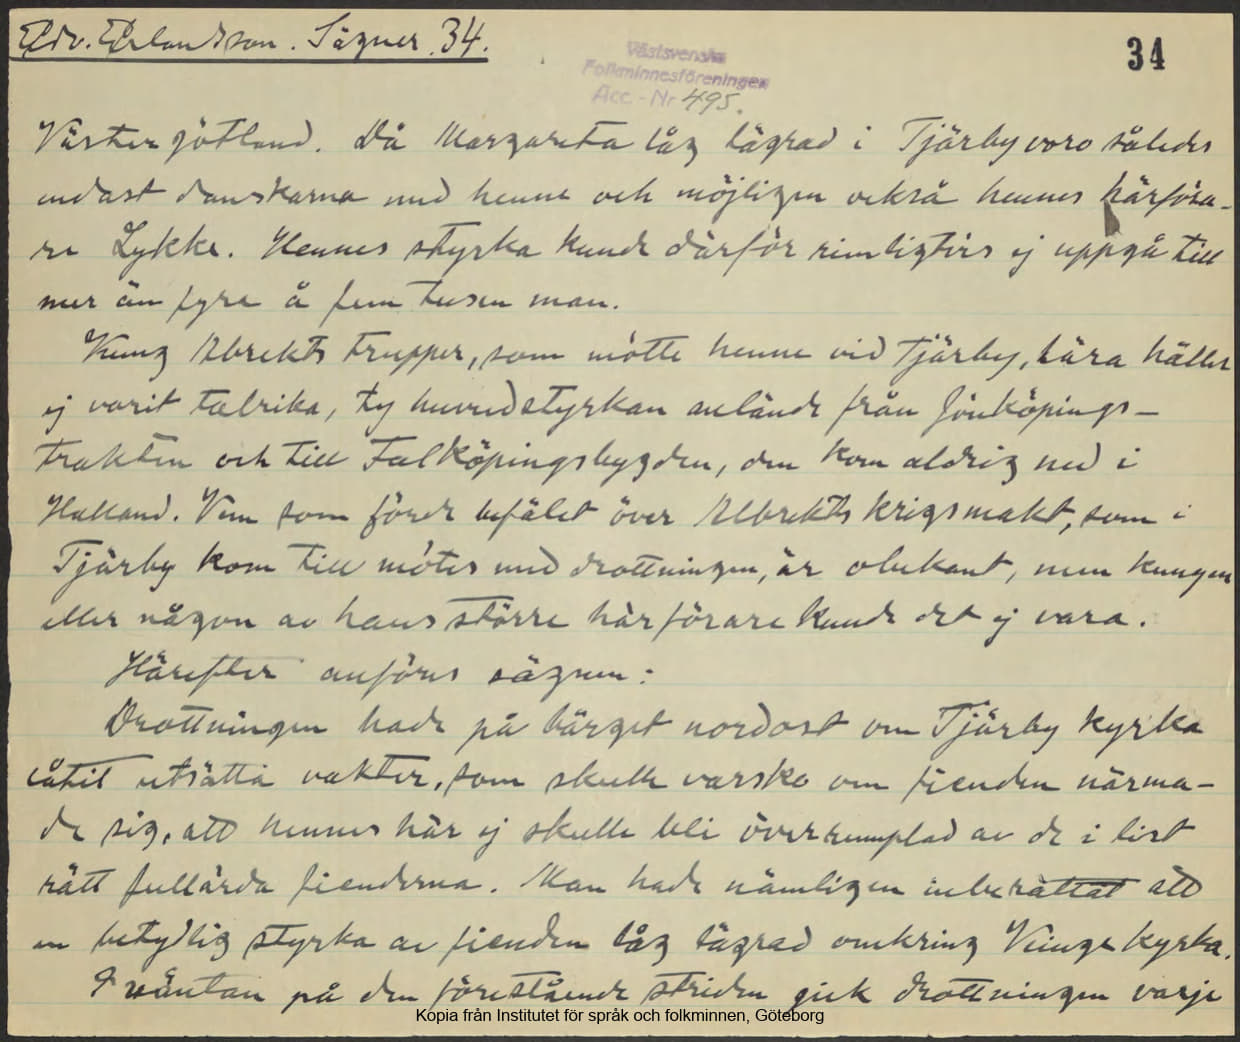 Edv. Erlandson. Sägner. 34.
34
Västsvenska
Folkminnesföreningen
Acc. - Nr 495.
Västergötland. Då Margareta låg lägrad i Tjärby voro således
endast danskarna med henne och möjligen också hennes härföra-
re Lykke. Hennes styrka kunde därför rimligtvis ej uppgå till
mer än fyra å fem tusen man.
Kung Albrekts trupper, som mötte henne vid Tjärby, lära häller
ej varit talrika, ty huvudstyrkan anlände från Jönköpings-
trakten och till Falköpingsbygden, den kom aldrig ned i
Halland. Vem som förde befälet över Albrekts krigsmakt, som i
Tjärby kom till mötes med drottningen, är obekant, men kungen
eller någon av hans större härförare kunde det ej vara.
Härefter anföres sägnen:
Drottningen hade på bärget nordost om Tjärby kyrka
låtit utsätta vakter, som skulle varsko om fienden närma-
de sig, att hennes här ej skulle bli överrumplad av de i list
rätt fullärda fienderna. Man hade nämligen inberättat att
en betydlig styrka av fienden låg lägrad omkring Veinge kyrka.
I väntan på den förestående striden gick drottningen varje
Kopia från Institutet för språk och folkminnen, Göteborg